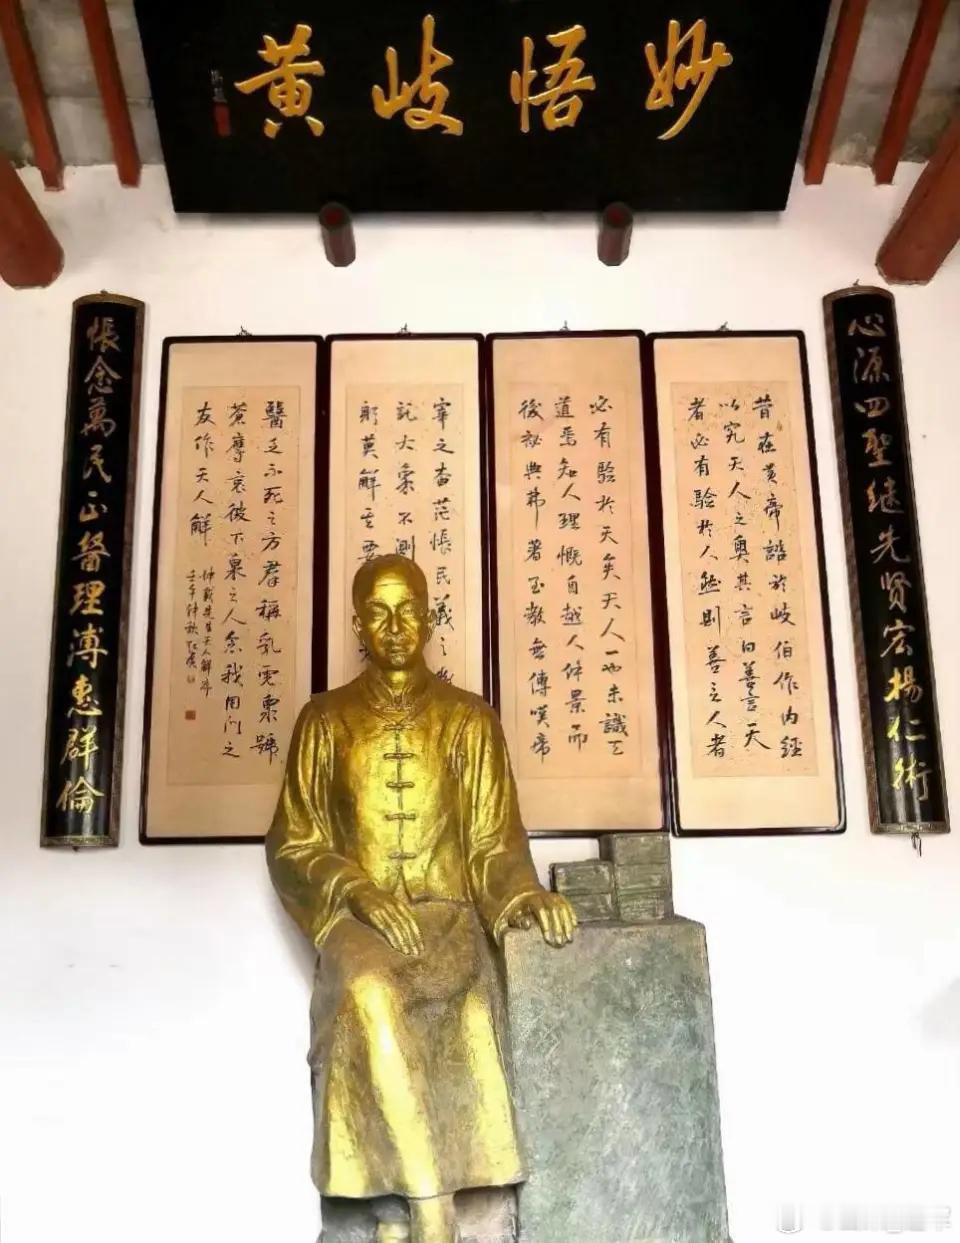 妙悟岐黄
心源四聖继先贤宏揚仁術
昔在黄帝諮於岐伯作内經
以究天人之奥其言曰善言天
者必有验於人然則善言人者
必有验於天矣天人一也未識天
道焉知人理慨自越人飾景而
後祕典弗著至教無傳嘆帝
宰之杳茫悵民義之
託大彙不測
躬莫解至要
醫乏不死之方羣稱乳雲粟號
蒼摩哀彼下泉之人念我同门之
友作天人解
先生天人解序
壬午仲秋
悵念萬民正醫理溥惠群倫